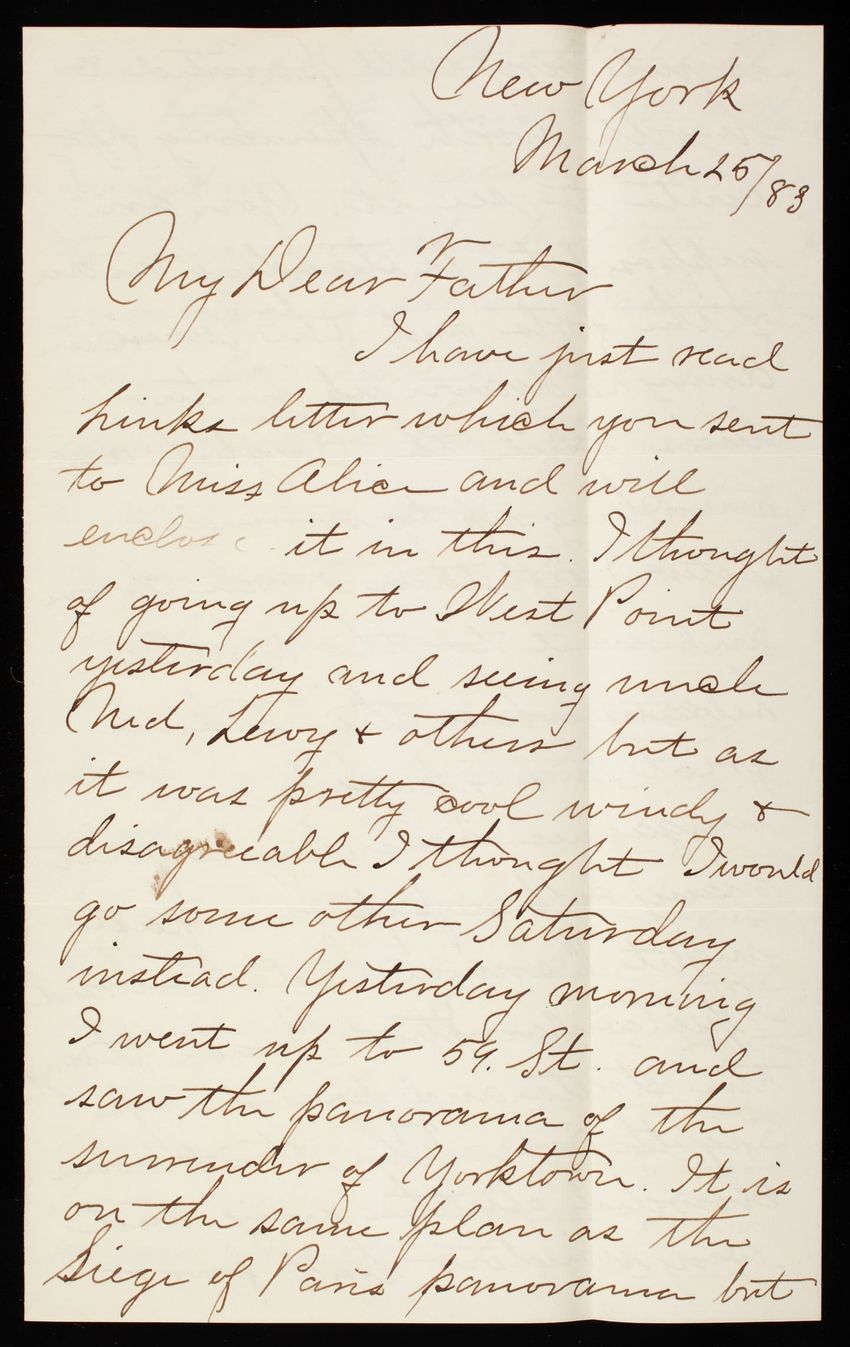 New York
March 25/83
My Dear Father
I have just read
Links letter which you sent
to Miss Alice and will
enclose it in this. I thought
of going up to West Point
yesterday and seeing uncle
Ned, Lewy & others but as
it was pretty cool windy &
disagreeable I thought I would
go some other Saturday
instead. Yesterday morning
I went up to 59. St. and
saw the panorama of the
surrender of Yorktown. It is
on the same plan as the
Siege of Paris panorama but